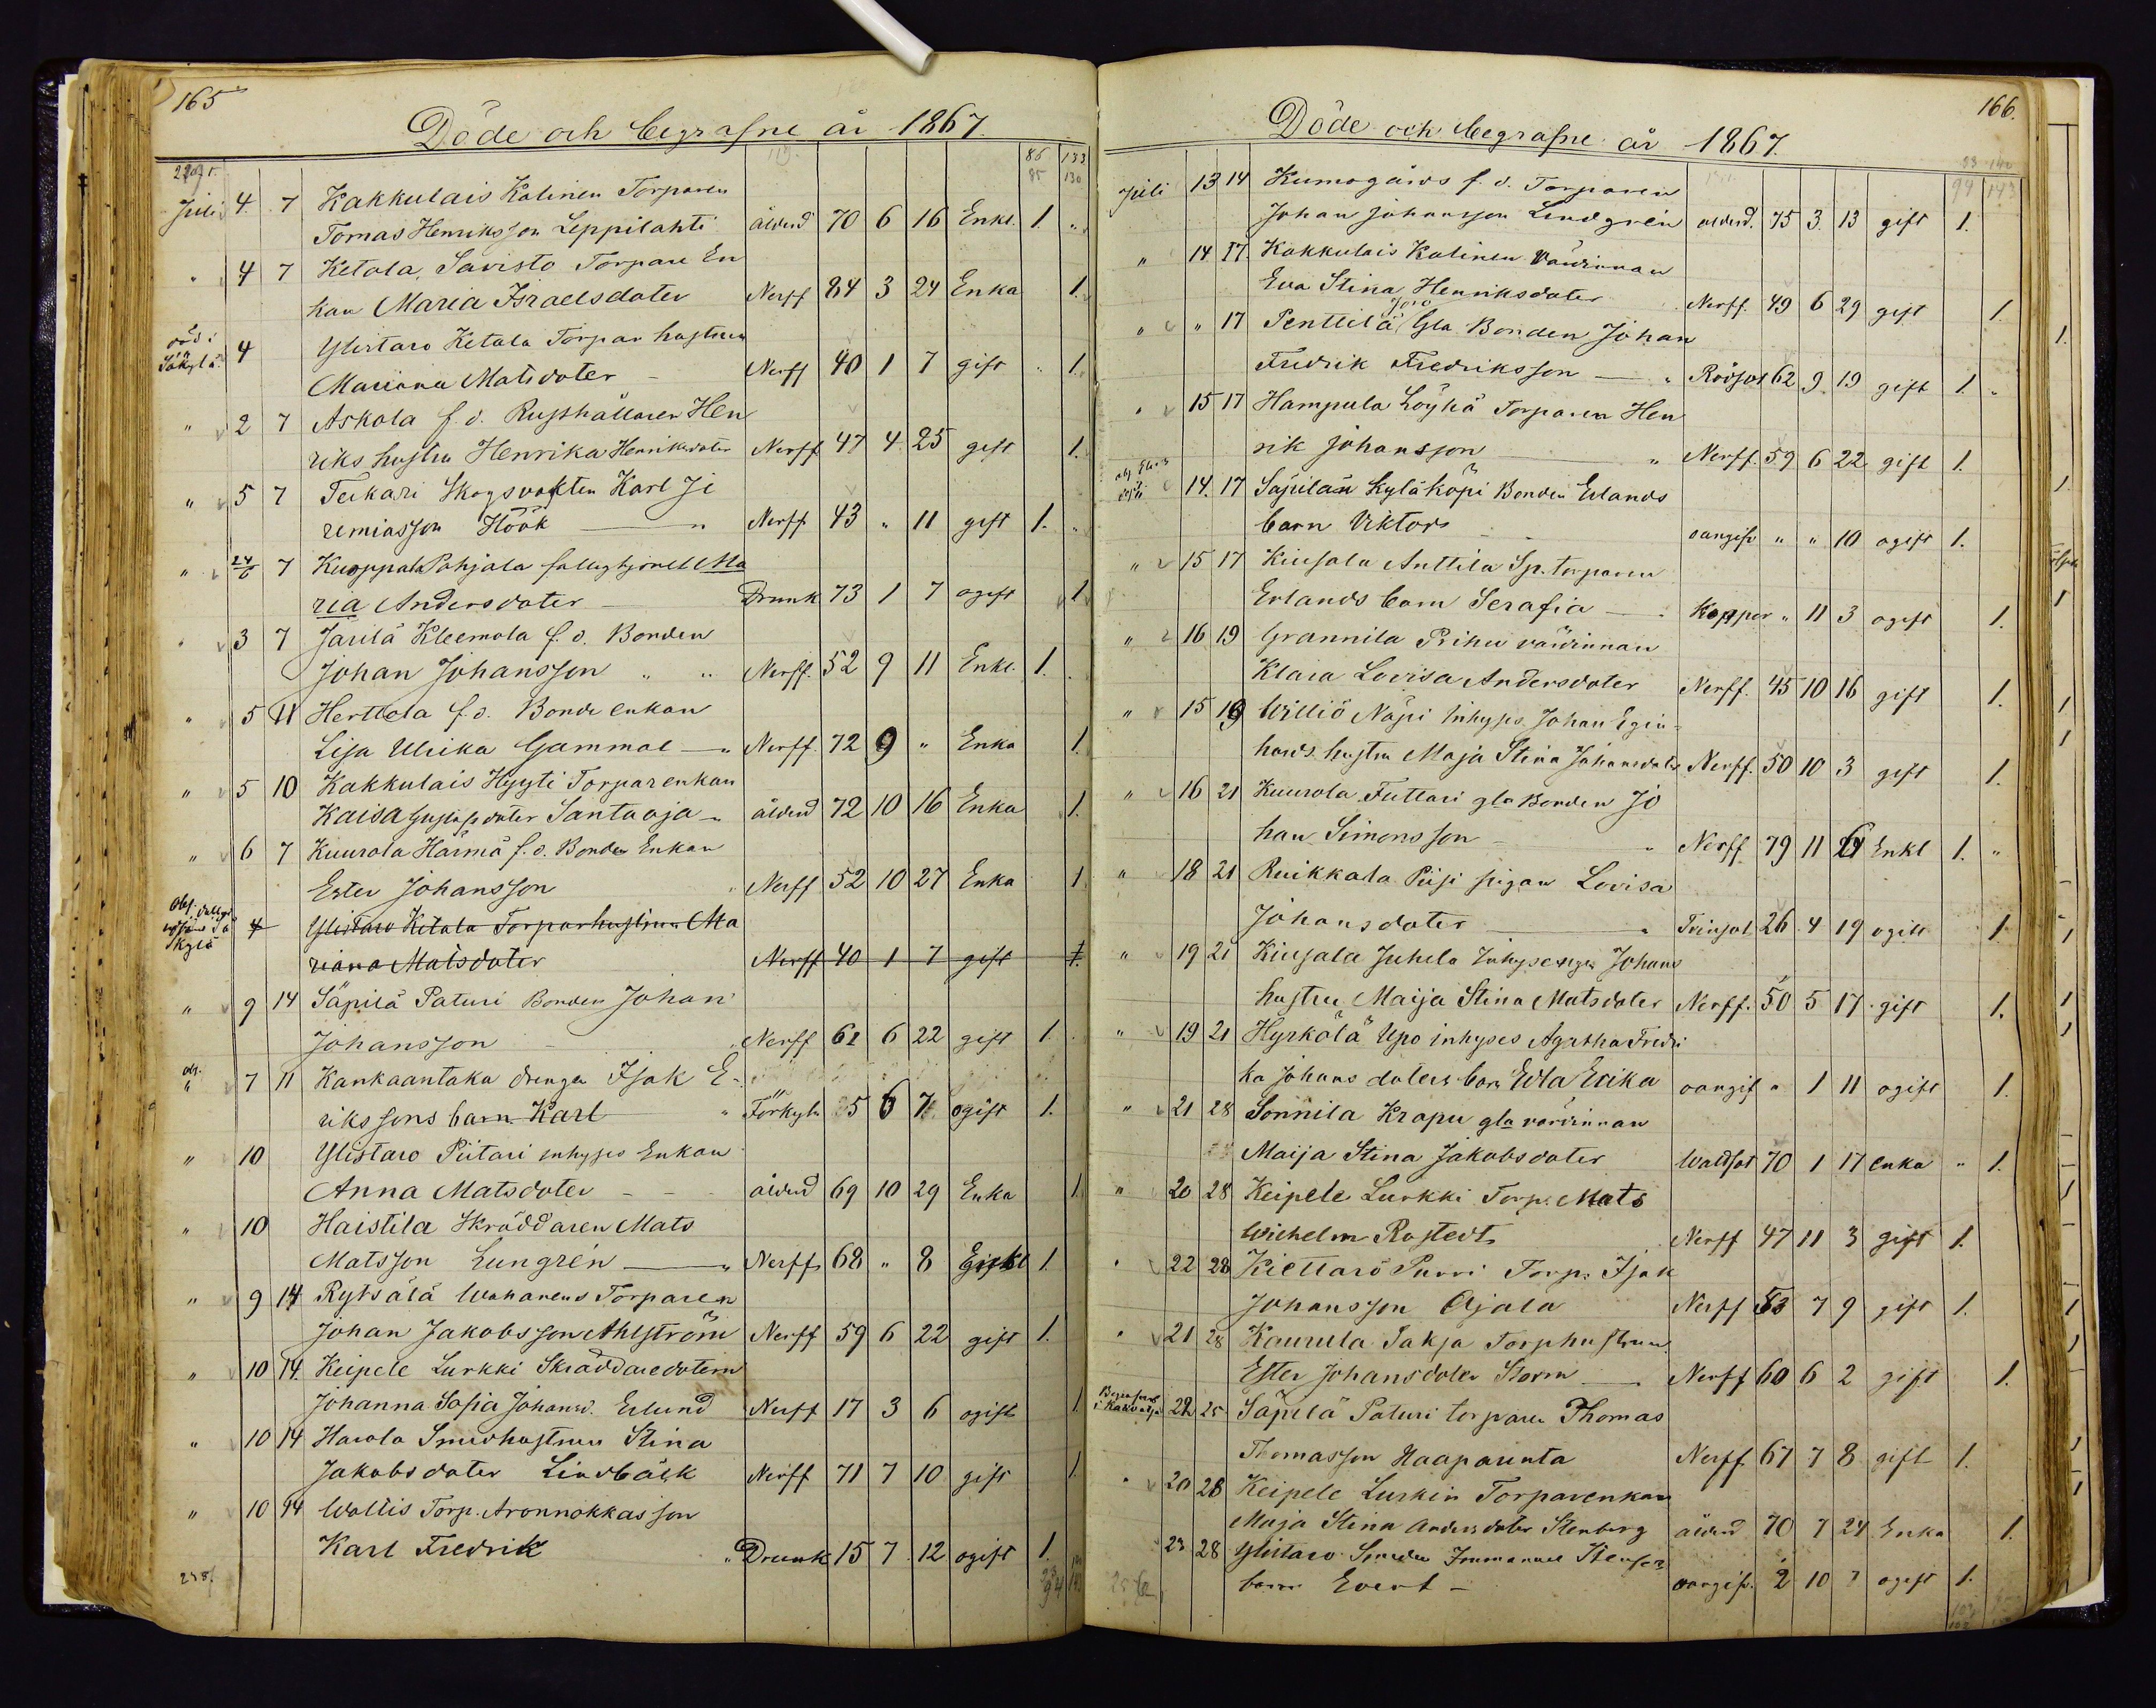 165
Döde och begrafne år 1867.
85 133
85 130
Juli 4. 7 Kakkulais Kalinen Torparen
Tomas Henriksson Leppilahti ålderd 70 6 16 Enkl. 1. "
" 4 7 Ketola Savisto Torpare En
kan Maria Israelsdoter Nerff 84 3 24 Enka 1.
död i Säkylä 4 Ylistaro Ketala Torpar hustrun
Mariana Matsdoter - Nerff 40 1 7 gift " 1.
" 2 7 Askola f. d. Rusthållaren Hen
riks hustru Henrika Henriksdoter Nerff 47 4 25 gift 1.
" 5 7 Teikari Skogsvakten Karl Je
remiasson Höök — " Nerff 43 " 11 gift 1. "
" 24/6 7 Kuoppala Pohjala fallighjonet Ma
ria Andersdoter - Drunk 73 1 7 ogift 1
" 3 7 Jarilä Kleemola f. d. Bonden
Johan Johansson " " Nerff. 52 9 11 Enkl. 1.
" 5 11 Herttola f. d. Bonde enkan
Lisa Ulrika Gammal — " Nerff. 72 9 " Enka 1.
" 5 10 Kakkulais Hyyti Torparenkan
Kaisa Gustafsdoter Santaoja - " ålderd 72 10 16 Enka 1.
" 6 7 Kuurola Härmä f. d. Bonde Enkan
Ester Johansson " Nerff 52 10 27 Enka 1
4 Ylistaro Ketala Torparhustrun Ma
riana Matsdoter Nerff 40 1 7 gift 1.
" 9 14 Säpilä Paturi Bonden Johan
Johansson - " Nerff 61 6 22 gift 1.
" 7 11 Kankaantaka drengen Isak E-
rikssons barn Karl " Förkyln 5 6 7 ogift 1.
" 10 Ylistaro Piitari inhyses Enkan
Anna Matsdoter - - - ålderd 69 10 29 Enka 1.
" 10 Haistila Skräddaren Mats
Matsson Lungrén — " Nerff 68 " 8 Enkl 1.
" 9 14 Rytsälä Wahanens Torparen
Johan Jakobsson Ahlström Nerff 59 6 22 gift 1.
" 10 14. Keipele Lurkki Skräddaredotern
Johanna Sofia Johansd. Erlund Nerff 17 3 6 ogift 1.
" 10 14 Harola Smedhustrun Stina
Jakobsdoter Lindbäck Nerff 71 7 10 gift 1.
" 10 14 Wallis Torp. Aronnokkas son
Karl Fredrik " Drunk 15 7 12 ogift 1.
166.
Döde och begrafne år 1867.
94 143
Juli 13 14 Kumogårds f. d. Torparen
Johan Johansson Lindgrén ålderd. 75 3 13 gift 1.
" 14 17. Kakkulais Kalinen Värdinnan
Eva Stina Henriksdoter Nerff. 49 6 29 gift 1.
" " 17 Penttilä Gla Bonden Johan
Fredrik Fredriksson — " Rödsot 62 9 19 gift 1. "
" 15 17 Hampula Löykä Torparen Hen
rik Johansson " Nerff. 59 6 22 gift 1.
14. 17 Säpilän Kyläköpi Bonden Erlands
barn Viktor oangifv " " 10 ogift 1.
" 15 17 Kiusala Anttila Sp. torparen
Erlands barn Serafia — " Koppor " 11 3 ogift 1.
" 16 19 Grannila Prihu värdinnan
Klara Lovisa Andersdoter Nerff. 45 10 16 gift 1.
" 15 19 Williö Näpi Inhyses Johan Egin=
hards hustru Maja Stina Johansdoter Nerff. 50 10 3 gift 1.
" 16 21 Kuurola Futtari gla Bonden Jo
han Simonsson - " Nerff 79 11 Enkl 1. "
" 18 21 Ruikkala Piisi pigan Lovisa
Johansdoter — " Tvinsot. 26 4 19 ogift 1
" 19 21 Kiusala Juhela Inhyseriges Johans
hustru Maija Stina Matsdoter Nerff. 50 5 17 gift 1.
" 19 21 Hyrkölä Upo inhyses Agatha Fredri
ka Johansdoters barn Edla Erika oangif " 1 11 ogift 1.
" 21 28 Sonnila Krapu gla värdinnan
Maija Stina Jakobsdoter Wattsot 70 1 17 enka " 1.
" 20 28 Keipele Lurkki Torp. Mats
Wichelm Rostedt Nerff 47 11 3 gift 1.
" 22 28 Kiettarö Purri Torp. Isak
Johansson Ojala Nerff 53 7 9 gift 1.
" 21 28 Kaurula Jakja Torphustrun
Ester Johansdoter Storm — " Nerff 60 6 2 gift 1.
22 25 Säpilä Paturi torparen Thomas
Thomasson Haaparinta Nerff. 67 7 8 gift 1.
" 20 28 Keipele Lurkin Torparenkan
Maja Stina Andersdoter Stenberg ålderd 70 7 24 Enka 1.
23 28 Ylistaro Smeden Immanuel
barn Evert - oangif. 2 10 7 ogift 1.